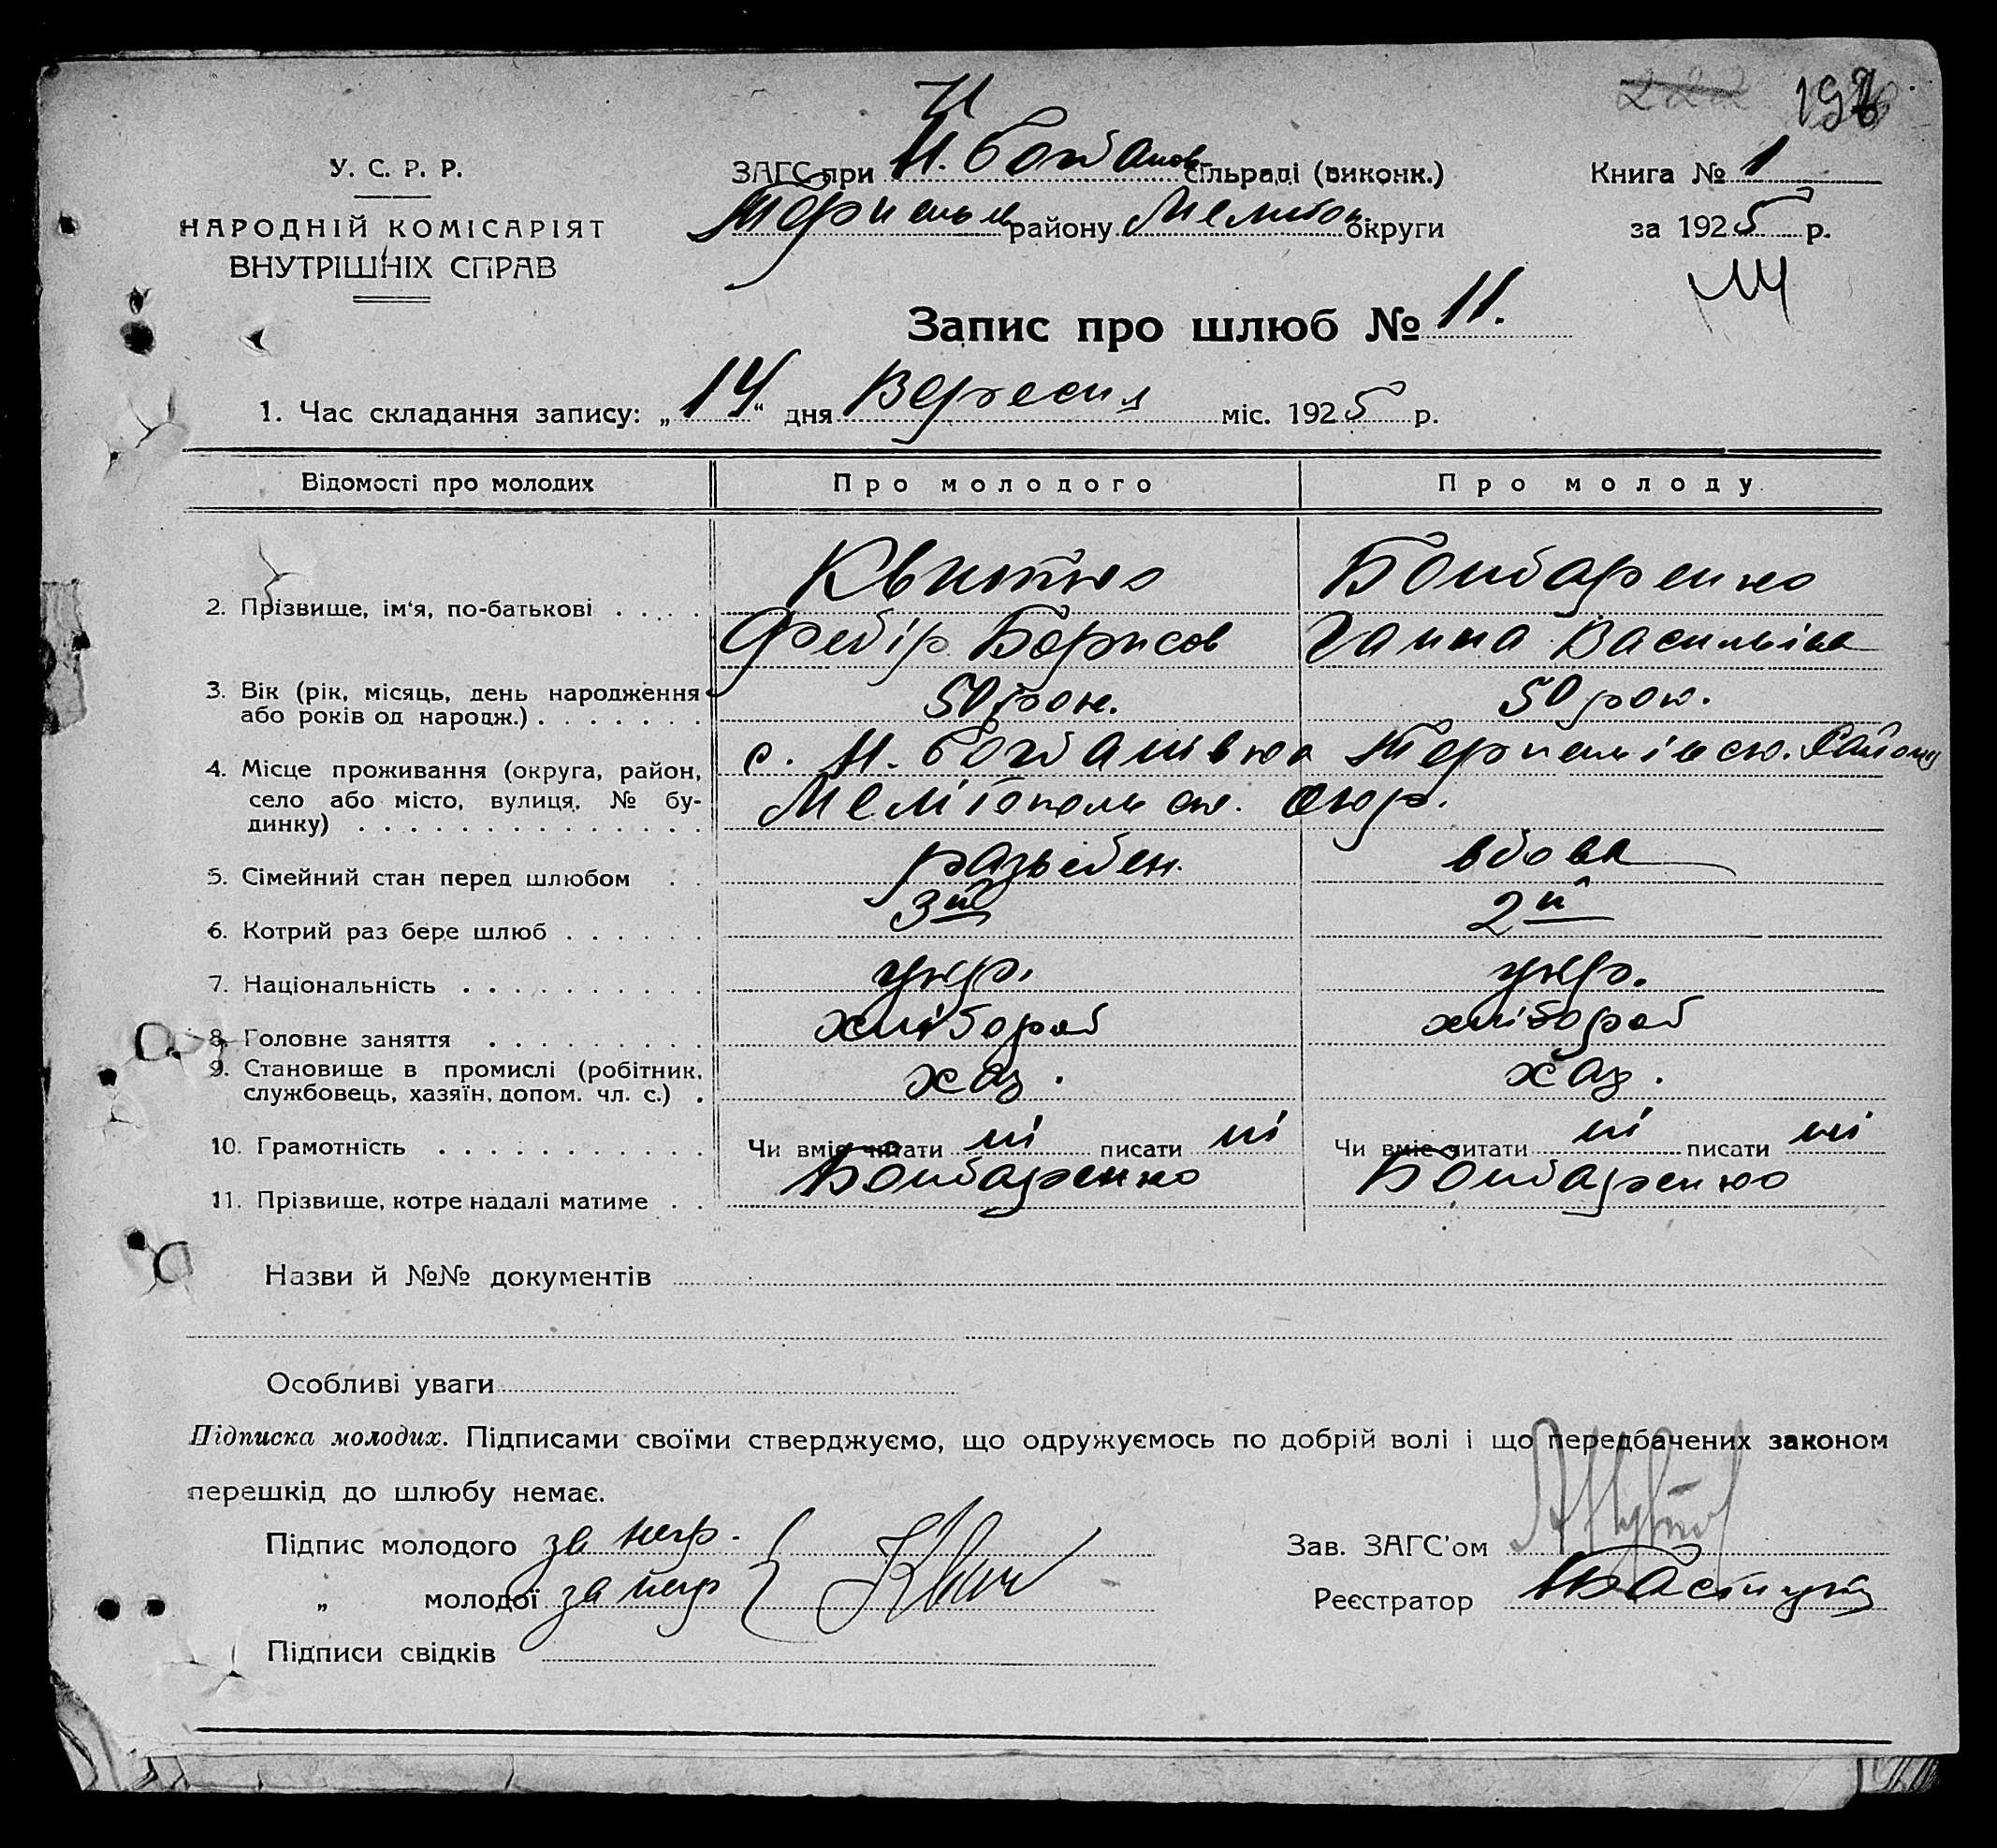 222 198
У. С. Р. Р.
НАРОДНІЙ КОМІСАРІЯТ
ВНУТРІШНІХ СПРАВ
ЗАГС при Н. Богданов сільраді (виконк.)
Терпеньев району Мелитоп. округи
Книга № 1
за 1925 р.
Запис про шлюб № 11.
1. Час складання запису: „14“ дня Вересня міс. 1925 р.
Відомості про молодих Про молодого Про молоду
2. Прізвище, ім‘я, по-батькові . . . . Квитко Бондаренко
Федір Борисов Ганна Васильівна
3. Вік (рік, місяць, день народження
або років од народж.) . . . . . . . 50 рок. 50 рок.
4. Місце проживання (округа, район,
село або місто, вулиця, № бу-
динку) . . . . . . . . . . . . . .
с. Н. Богданівка Терпеньівськ. Району
Мелітопольск. окр.
5. Сімейний стан перед шлюбом . . разведен. вдова
6. Котрий раз бере шлюб . . . . . . 3й 2й
7. Національність . . . . . . . . . . укр. укр.
8. Головне заняття . . . . . . . . . хлібороб хлібороб
9. Становище в промислі (робітник,
службовець, хазяїн, допом. чл. с.) . хаз. хаз.
10. Грамотність . . . . . . . . . . . Чи вміє читати ні писати ні Чи вміє читати ні писати ні
11. Прізвище, котре надалі матиме . . Бондаренко Бондаренко
Назви й №№ документів
Особливі уваги
Підписка молодих. Підписами своїми стверджуємо, що одружуємось по добрій волі і що передбачених законом
перешкід до шлюбу немає.
Підпис молодого за негр.
„ молодої за негр
Підписи свідків
Зав. ЗАГС'ом
Реєстратор